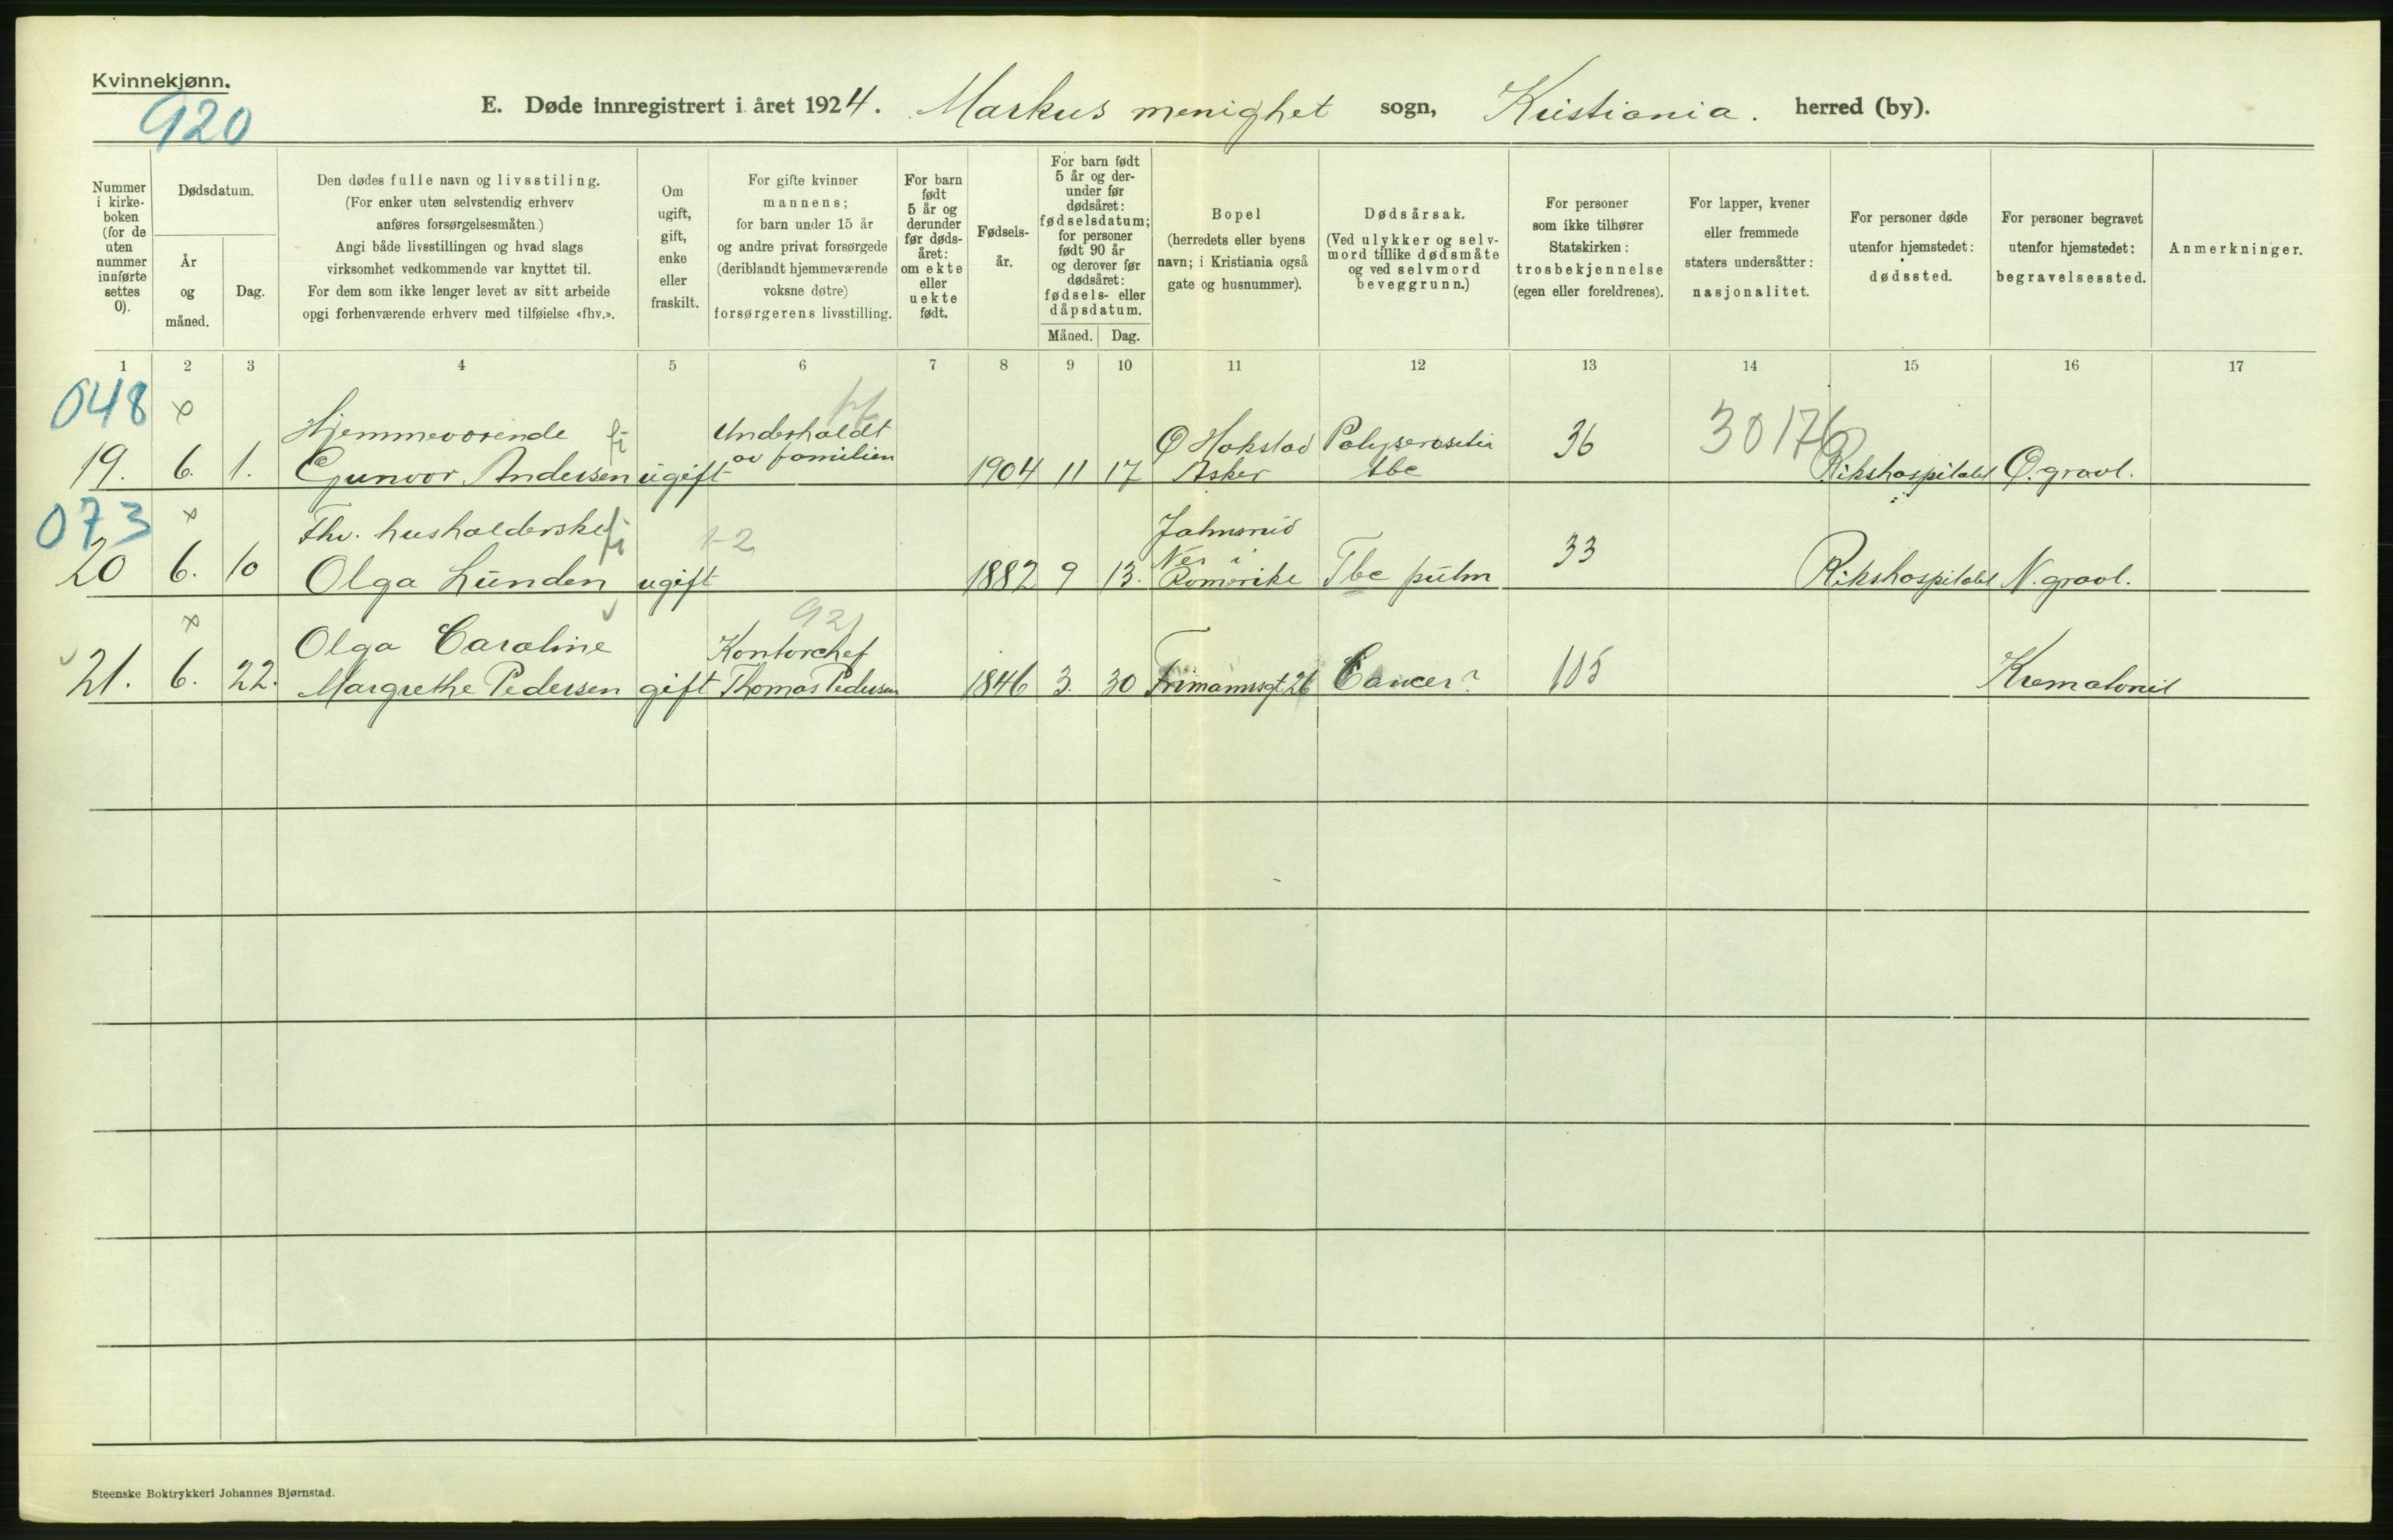 Kvinnekjønn.
920
E. Døde innregistrert i året 1924. Markus menighet sogn, Kristiania. herred (by).
Nummer i kirke- boken (for de uten nummer innførte settes 0).
Dødsdatum.
År og måned.
Dag.
Den dødes fulle navn og livsstiling.
(For enker uten selvstendig erhverv
anføres forsørgelsesmåten.)
Angi både livsstillingen og hvad slags
virksomhet vedkommende var knyttet til.
For dem som ikke lenger levet av sitt arbeide
opgi forhenværende erhverv med tilføielse «fhv.».
Om ugift, gift, enke eller fraskilt.
For gifte kvinner
mannens;
for barn under 15 år
og andre privat forsørgede
(deriblandt hjemmeværende
voksne døtre)
forsørgerens livsstilling.
For barn født 5 år og derunder før døds- året: om ekte eller uekte født.
Fødsels- år.
For barn født
5 år og der-
under før
dødsåret:
fødselsdatum;
for personer
født 90 år
og derover før
dødsåret:
fødsels- eller
dåpsdatum.
Måned. Dag.
Bopel
(herredets eller byens
navn; i Kristiania også
gate og husnummer).
Dødsårsak.
(Ved ulykker og selv-
mord tillike dødsmåte
og ved selvmord
beveggrunn.)
For personer
som ikke tilhører
Statskirken:
trosbekjennelse
(egen eller foreldrenes).
For lapper, kvener
eller fremmede
staters undersåtter:
nasjonalitet.
For personer døde
utenfor hjemstedet:
dødssted.
For personer begravet
utenfor hjemstedet:
begravelsessted.
Anmerkninger.
1 2 3 4 5 6 7 8 9 10 11 12 13 14 15 16 17
048 x
Hjemmeværende fi Underholdt Ø Hakstad 36 30176
19. 6. 1. Gunvor Andersen ugift av familien 1904 11 17 Asker tbc Rikshospitalet Ø. gravl.
073 x
Fhv. husholderske fi Nes i 33
20 6. 10 Olga Lunden ugift 1882 9 13. Romerike Tbc pulm Rikshospitalet N. gravl.
x 921
Olga Caroline Kontorchef
21. 6. 22. Margrethe Pedersen gift Thomas Pedersen 1846 3. 30 Frimannsgt 26 Cancer? 105 Krematoriet
Steenske Boktrykkeri Johannes Bjørnstad.